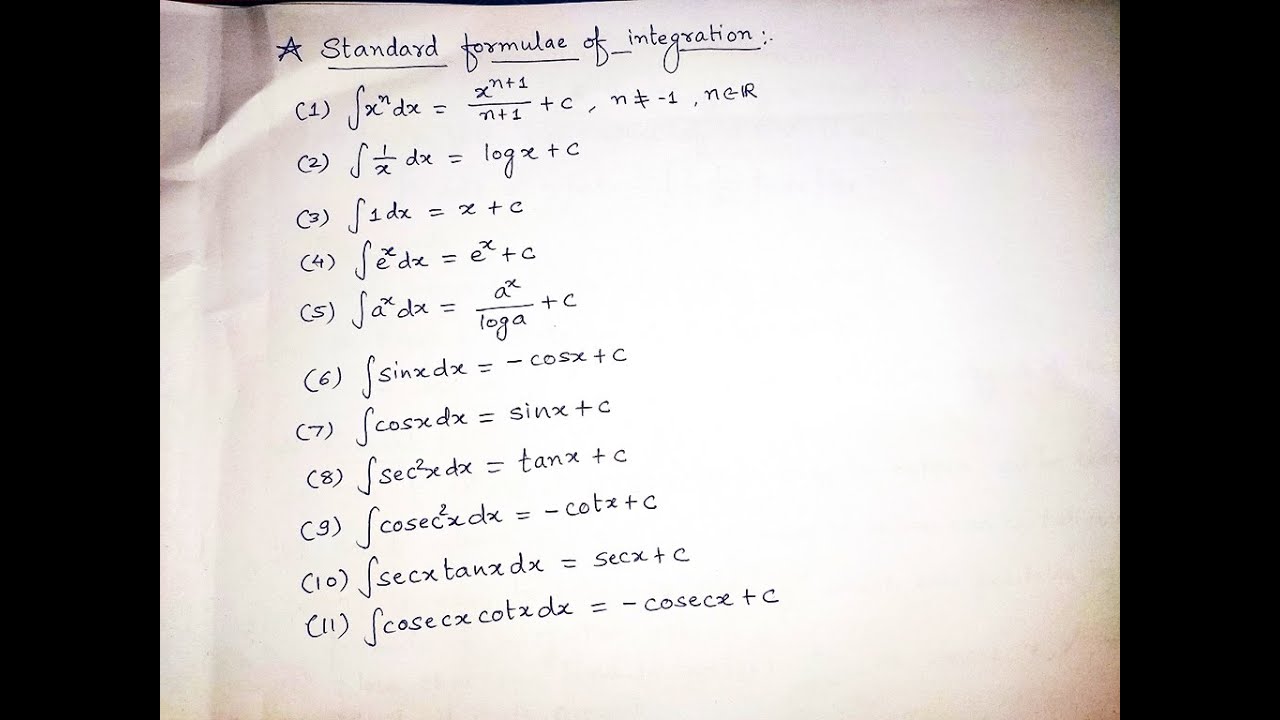 ☆ Standard formulae of integration:.
(1) ∫xⁿdx = xⁿ⁺¹/n+1 + c , n ≠ -1 , n∈ℝ
(2) ∫1/x dx = logx + c
(3) ∫1dx = x + c
(4) ∫eˣdx = eˣ + c
(5) ∫aˣdx = aˣ/loga + c
(6) ∫sinxdx = -cosx + c
(7) ∫cosxdx = sinx + c
(8) ∫sec²xdx = tanx + c
(9) ∫cosec²xdx = -cotx + c
(10) ∫secxtanxdx = secx + c
(11) ∫cosecxcotxdx = -cosecx + c